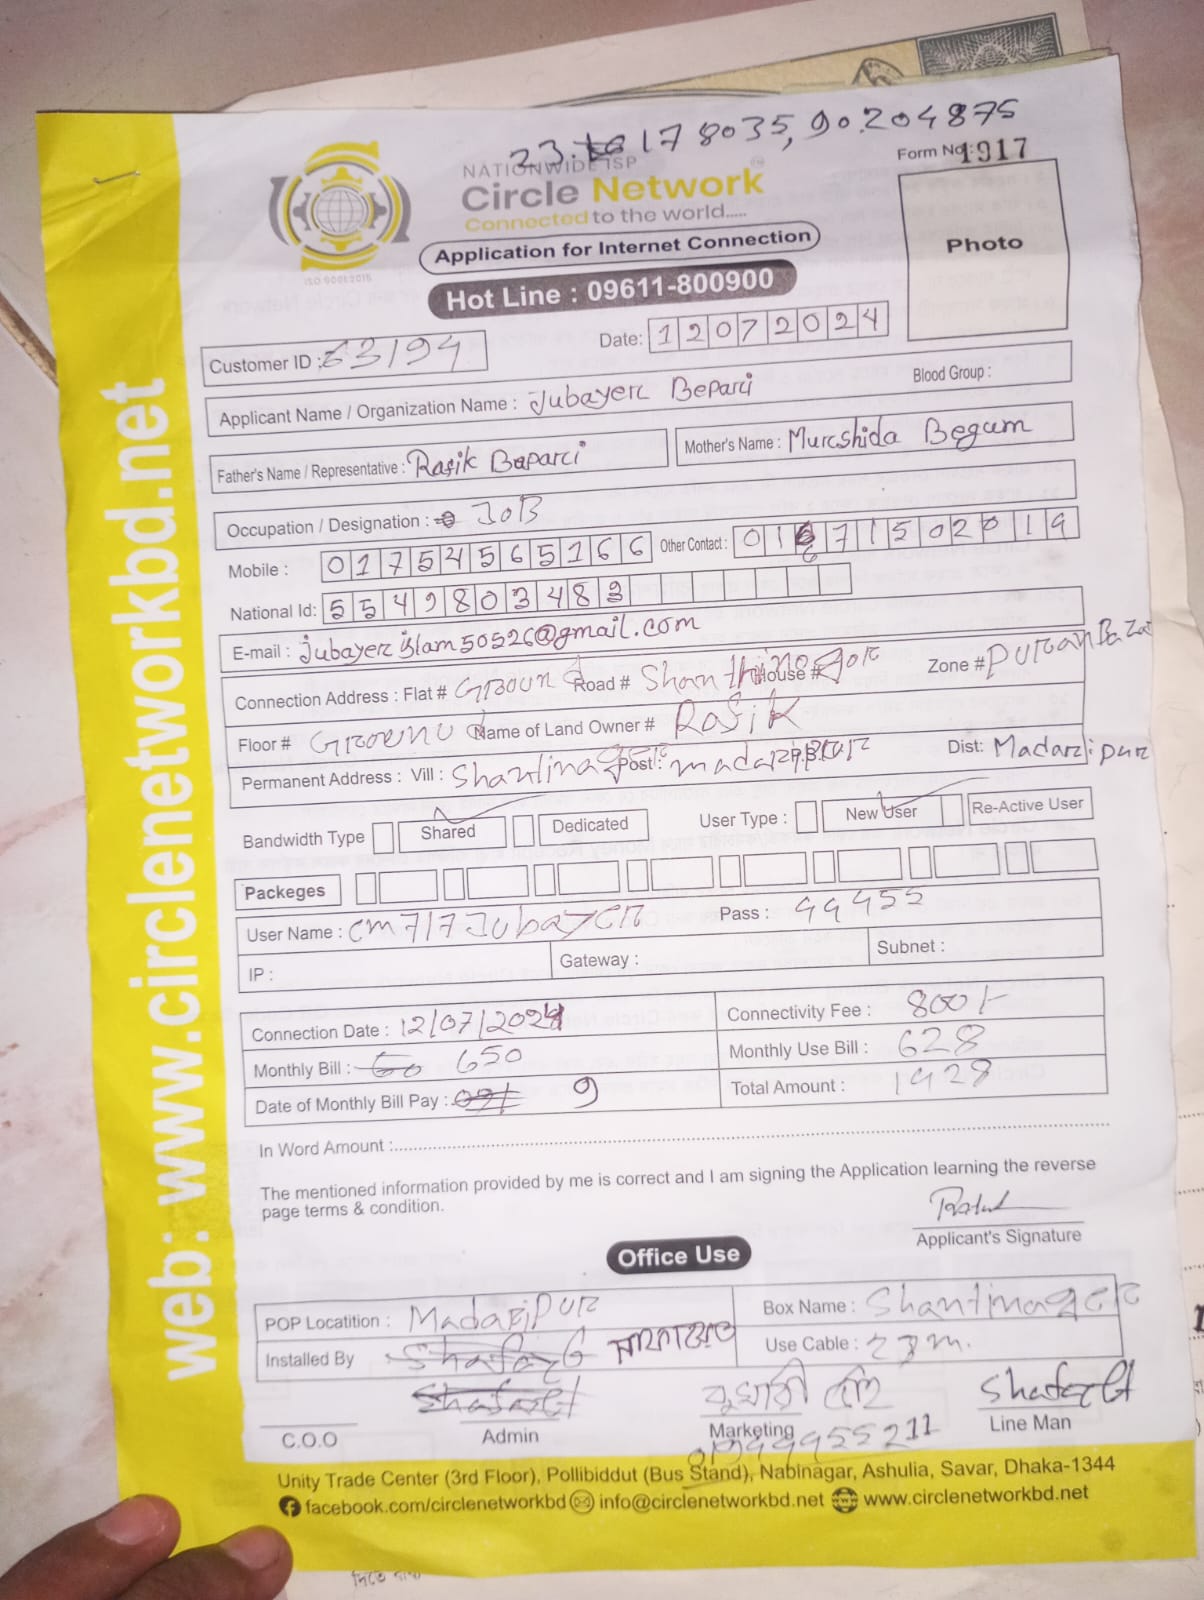 23.178035, 90.204875
NATIONWIDE ISP
Form No: 1917
Circle Network
Connected to the world.....
Application for Internet Connection
Photo
ISO 9001:2015
Hot Line : 09611-800900
Date: 12072024
Customer ID : 63194
Applicant Name / Organization Name : Jubayer Bepari
Blood Group :
Father's Name / Representative : Rafik Beparci
Mother's Name : Murshida Begum
Occupation / Designation : JOB
Mobile : 01754565166 Other Contact : 01671502019
National Id: 5549803483
E-mail : jubayer islam50526@gmail.com
Connection Address : Flat # Ground Road # Shanthinagor House # Zone # Puran Bazar
Floor # Ground Name of Land Owner # Rafik
Permanent Address : Vill : Shantinagor Post : madaripur Dist: Madaripur
Bandwidth Type Shared Dedicated User Type : New User Re-Active User
Packeges
User Name : cm717Jubayer Pass : 99955
IP : Gateway : Subnet :
Connection Date : 12/07/2024 Connectivity Fee : 800/-
Monthly Bill : 650 Monthly Use Bill : 628
Date of Monthly Bill Pay : 9 Total Amount : 1428
In Word Amount :
The mentioned information provided by me is correct and I am signing the Application learning the reverse
page terms & condition.
Applicant's Signature
Office Use
POP Locatition : Madaripur Box Name : Shantinager
Installed By Use Cable : 23m.
C.O.O Admin Marketing Line Man
Unity Trade Center (3rd Floor), Pollibiddut (Bus Stand), Nabinagar, Ashulia, Savar, Dhaka-1344
facebook.com/circlenetworkbd info@circlenetworkbd.net www.circlenetworkbd.net
web: www.circlenetworkbd.net